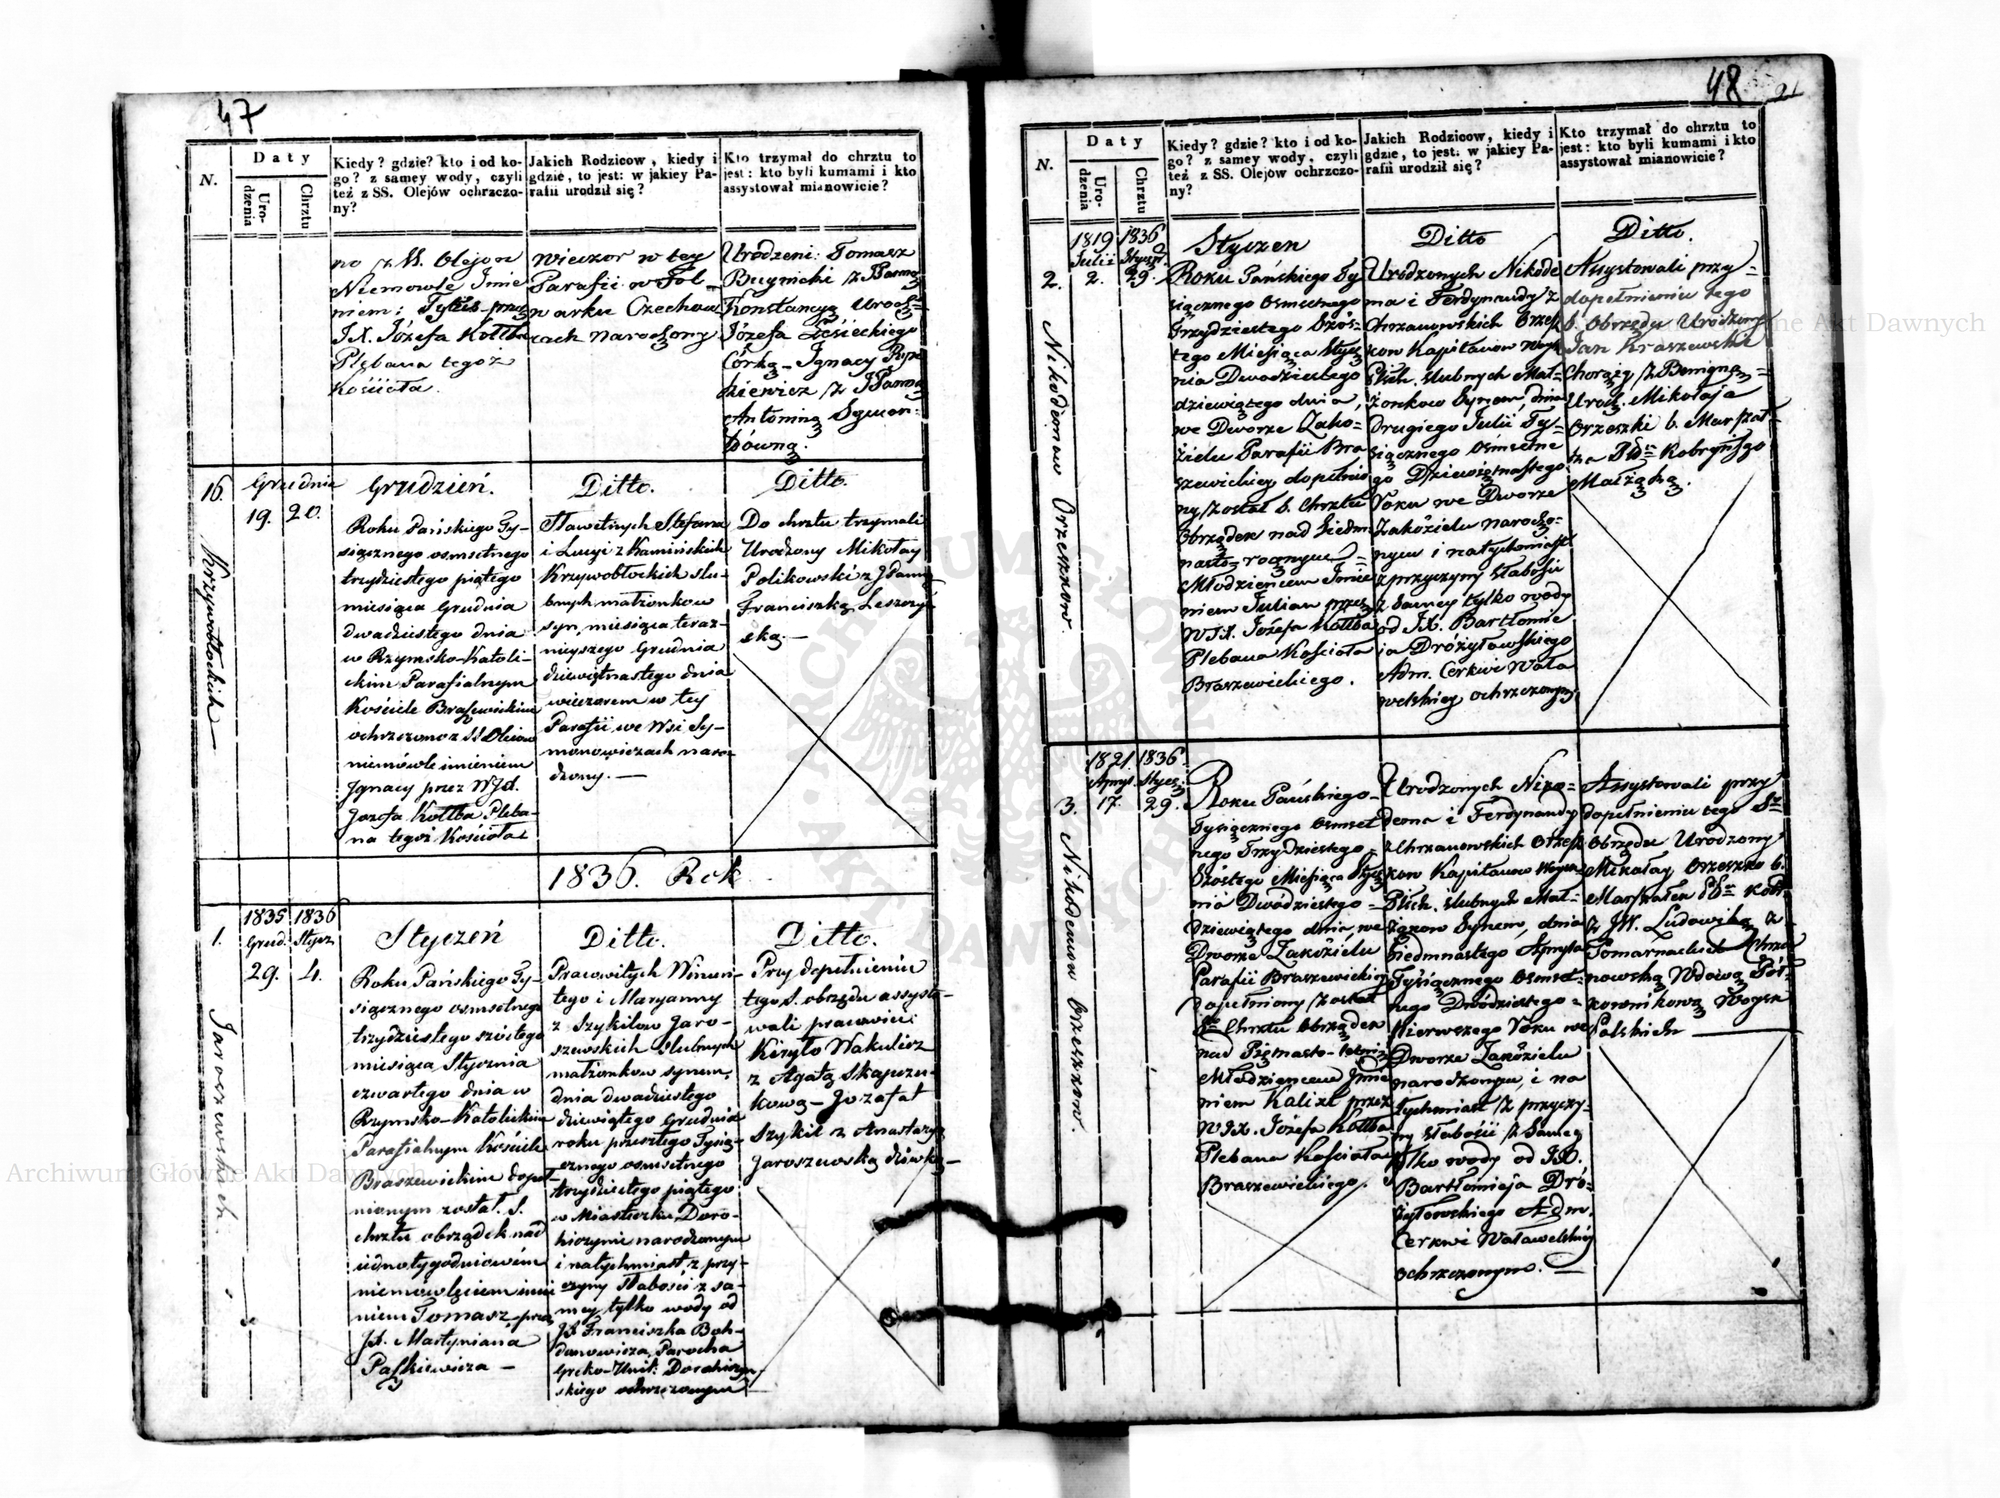 47
N.
Daty
Urodzenia
Chrztu
Kiedy? gdzie? kto i od ko-
go? z samey wody, czyli
też z SS. Olejów ochrzczo-
ny?
Jakich Rodzicow, kiedy i
gdzie, to jest: w jakiey Pa-
rafii urodził się?
Kto trzymał do chrztu to
jest: kto byli kumami i kto
assystował mianowicie?
Niemowle Imie
niem: Tytus przez
J.X. Józefa Kottba
Plebana tegoż
Kościoła.
wieczor w tey
Parafii w Fol-
warku Czechow
cach narodzony
Urodzeni: Tomasz
Konstancyą Urodz=
Józefa
Córką – Ignacy
Antoniną Szymon=
kówną.
16.
Krzywobłockich
Grudnia
19. 20.
Grudzień.
Roku Pańskiego Ty-
siącznego osmsetnego
trzydziestego piątego
miesiąca Grudnia
dwudziestego dnia
w Rzymsko-Katoli-
ckim Parafialnym
Kościele Braszewickim
ochrzczono z SS Olejow
niemówle imieniem
Ignacy przez WJX.
Jozefa Kottba Pleba-
na tegoż Kościoła
Ditto.
Sławetnych Stefana
i Lucyi z Kamińskich
Krzywobłockich slu-
bnych małżonkow
syn, miesiąca teraz-
nieyszego Grudnia
dziewiętnastego dnia
wieczorem w tey
Parafii we Wsi Sy-
monowiczach naro-
dzony. —
Ditto.
Do chrztu trzymali
Urodzony Mikołay
Polikowski z JPanną
Franciszką Leszczyń
ską. —
1836. Rok
1.
Jaroszewskich.
1835 1836
Grud. Stycz.
29. 4.
Styczeń
Roku Pańskiego Ty-
siącznego osmsetnego
trzydziestego szóstego
miesiąca Stycznia
czwartego dnia w
Rzymsko-Katolickim
Parafialnym Kościele
Braszewickim dopeł-
nionym został S.
chrztu obrządek nad
iednotygodniowém
niemowlęciem imie
niem Tomasz przez
JX. Martyniana
Paszkiewicza —
Ditto.
Pracowitych Wincen-
tego i Maryanny
z Szykilow Jaro-
szewskich slubnych
małżonkow synem,
dnia dwudziestego
dziewiątego Grudnia
roku przeszłego Tysią-
cznego osmsetnego
trzydziestego piątego
w Miasteczku Doro-
hiczynie narodzonym
i natychmiast z przy-
czyny słabości z sa-
mey tylko wody od
JX. Franciszka Boh-
danowicza, Parocha
Greko-Unit: Dorohiczyn-
skiego ochrzczonym
Ditto.
Przy dopełnieniu
tego S. obrządu assysto-
wali pracowici:
Kiryło Wakulicz
z Agatą
kową – Jozafat
Szykił z Anastazyą
Jaroszewską dziewką —
48
21
N.
Daty
Urodzenia
Chrztu
Kiedy? gdzie? kto i od ko-
go? z samey wody, czyli
też z SS. Olejów ochrzczo-
ny?
Jakich Rodzicow, kiedy i
gdzie, to jest: w jakiey Pa-
rafii urodził się?
Kto trzymał do chrztu to
jest: kto byli kumami i kto
assystował mianowicie?
2.
Nikodemow Orzeszkow
1819 1836
Julii Stycz.
2. 29.
Styczen
Roku Pańskiego Ty
siącznego Osmsetnego
Trzydziestego Szós-
tego Miesiąca Stycz
nia Dwudziestego
dziewiątego dnia,
we Dworze Zako=
zielu Parafii Bra
szewickiey dopełnio
ny został S. Chrztu
Obrządek nad Siedm
nasto-rocznym
Młodzieńcem Imie
niem Julian przez
WJX. Jozefa Kottba
Plebana Kościoła
Braszewickiego.
Ditto
Urodzonych Nikode
ma i Ferdynandy z
Chrzanowskich Orzesz
kow Kapitanow Woysk
Polsk. slubnych Mał=
żonkow Synem, dnia
drugiego Julii Ty-
siącznego Osmsetne
go Dziewiętnastego
roku we Dworze
Zakozielu narodzo-
nym i natychmiast
z przyczyny słabości
z samey tylko wody
od JX. Bartłomie
ia Dróżyłowskiego
Adm. Cerkwi Woła
welskiey ochrzczonym
Ditto.
Assystowali przy=
dopełnieniu tego
S. Obrzędu Urodzony
Jan Kraszewski
Chorąży z Benigną=
Urodz. Mikołaja
Orzeszki b. Marszał-
ka Pttu Kobryńsgo
Małżąką.
3.
Nikodemow Orzeszkow.
1821. 1836.
Apryl Stycz.
17. 29.
Roku Pańskiego
Tysiącznego Osmset
nego Trzydziestego
Szóstego Miesiąca Stycz
nia Dwódziestego=
dziewiątego dnia, we
Dworze Zakozielu
Parafii Braszewickiey
dopełniony został
S. Chrztu Obrządek
nad Piętnasto-letnim
Młodzieńcem Imie
niem Kalixt przez
WJX. Jozefa Kottba
Plebana Kościoła
Braszewickiego.
Urodzonych Niko=
dema i Ferdynandy
z Chrzanowskich Orzesz
kow Kapitanow Woysk
Polsk. slubnych Mał=
żonkow Synem, dnia
Siedmnastego Apryla
Tysiącznego Osmset=
nego Dwódziestego=
Pierwszego roku we
Dworze Zakozielu
narodzonym, i na
tychmiast z przyczy-
ny słabości z samey
tylko wody od JX.
Bartłomieja Dró-
żyłowskiego Adm.
Cerkwi Woławelskiey
ochrzczonym. —
Assystowali przy
dopełnieniu tego S.
Obrzędu Urodzony
Mikołay Orzeszko b.
Marszałek Pttu Kobr.
z JW. Ludowiką z
Chrza
nowską Wdową Pół-
kownikową Woysk
Polskich —
ARCHIWUM GŁÓWNE
AKT DAWNYCH
Archiwum Główne Akt Dawnych
Archiwum Główne Akt Dawnych